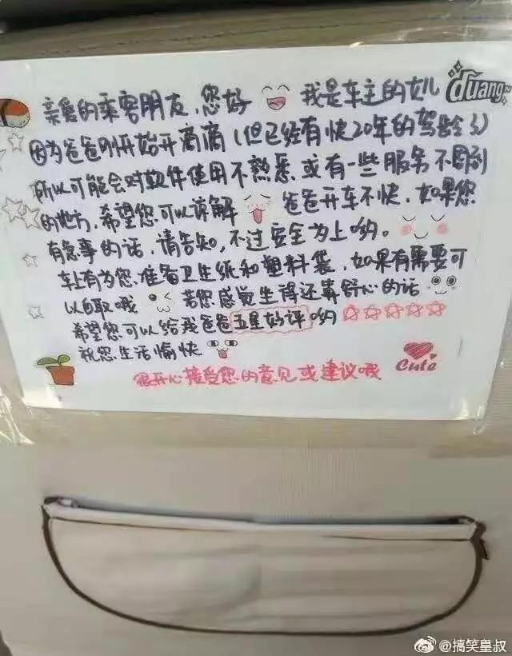 亲爱的乘客朋友，您好 我是车主的女儿
duang~
因为爸爸刚开始开滴滴（但已经有快20年的驾龄了）
所以可能会对软件使用不熟悉，或有一些服务不周到
的地方，希望您可以谅解 爸爸开车不快，如果您
有急事的话，请告知，不过安全为上哟。
车上有为您准备卫生纸和塑料袋，如果有需要可
以自取哦 若您感觉坐得还算舒心的话
希望您可以给我爸爸五星好评哟☆☆☆☆☆
祝您生活愉快
很开心接受您的意见或建议哦
Cute
@搞笑皇叔